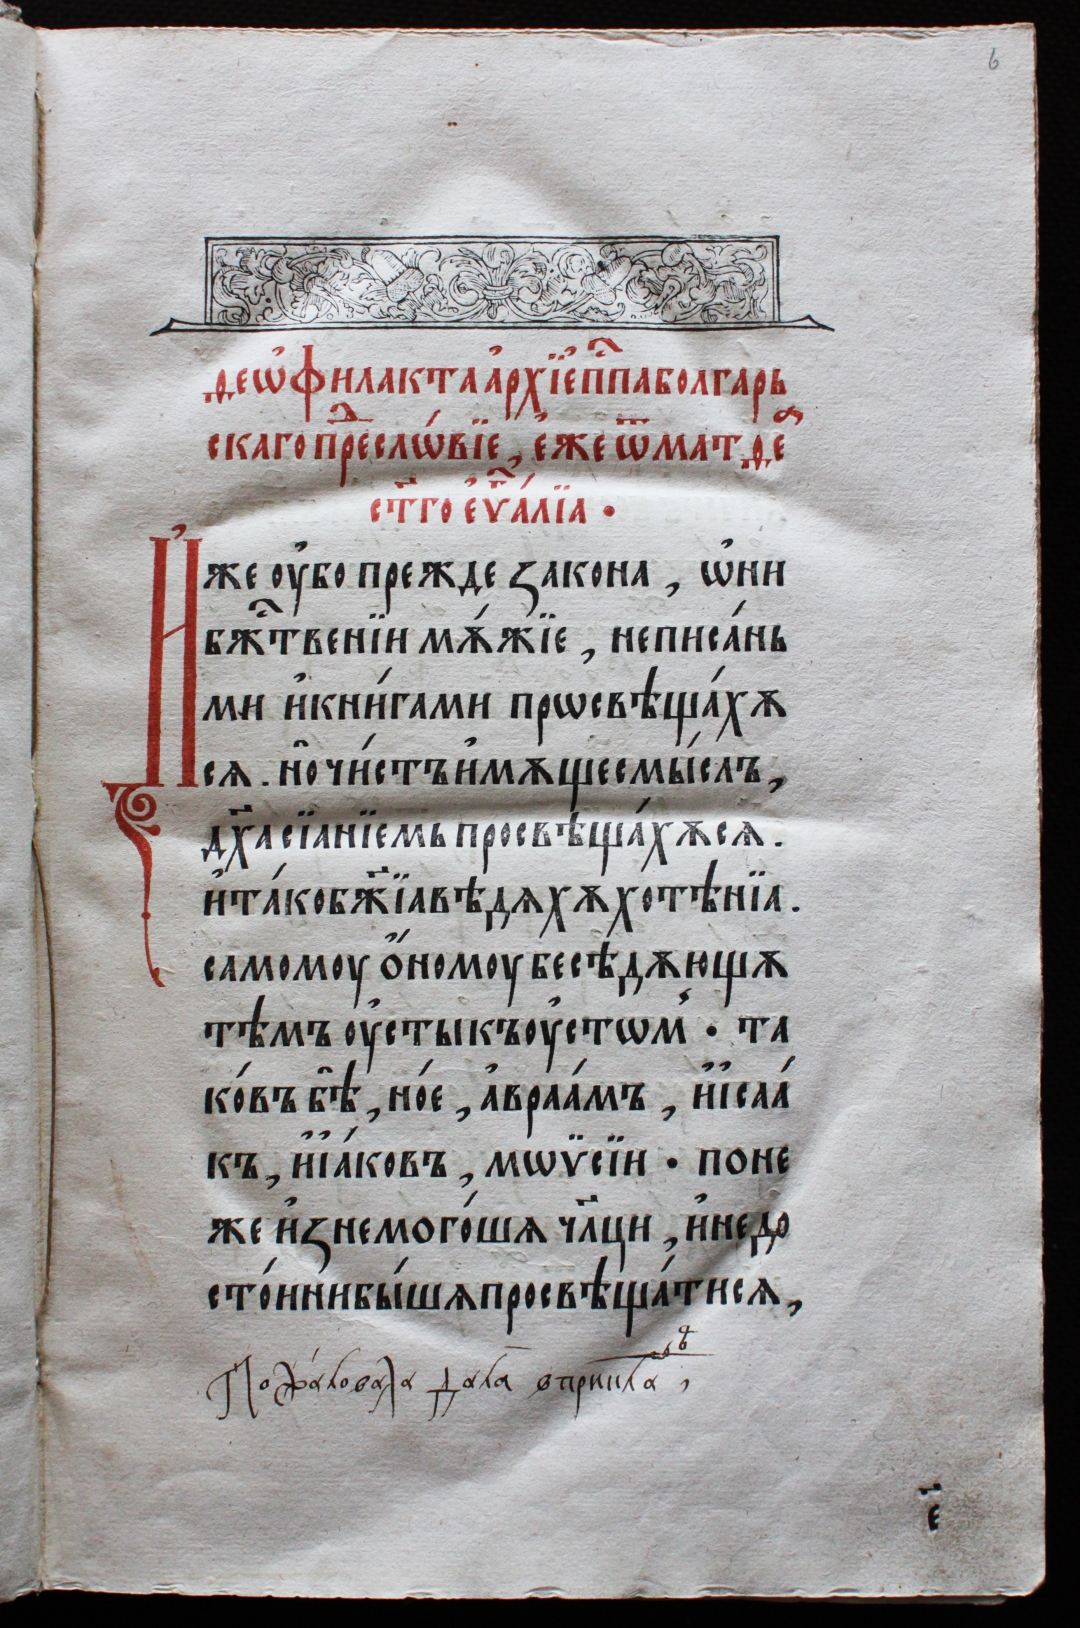 6
Ѳеѡ҆фила́кта а҆рхїе҆пⷭ҇па болгарь
скаго преⷣсло́вїе, е҆же ѿ матѳеⷽ
ст҃го є҆ѵⷢ҇а́лїа ·
И҆же ᲂу҆бо прежде закона, ѡ҆ни
бжⷭ҇твенїи мѫ́жїе, неписа́нь
ми и҆ кни́гами прѡсвѣща́хѫ
сѧ. но̑ чи́стъ и҆мѫще смы́слъ,
дх҃а сїанїемь просвѣща́хѫсѧ.
и҆ та́ко бж҃їа вѣдѧхѫ хотѣнїа.
самомоу ѻ҆́номоу бесѣдѫющѫ
тѣмъ ᲂу҆сты къ ᲂу҆стѡм̾ · та
ко́въ бѣ̑, но́е, а҆враа́мъ, и҆ і҆саа́
къ, и҆ і҆а́ковъ, мѡѷсїи · поне
же и҆знемого́шѧ чл҃ци, и҆ недо
сто́ини бы́шѧ просвѣща́тисѧ,
є҃